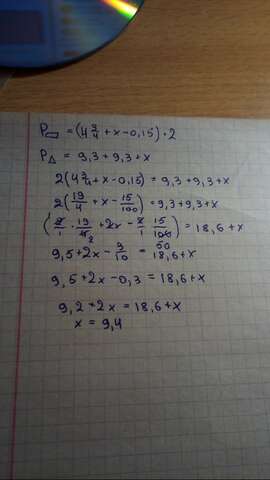 P▭ = (4 3/4 + x - 0,15) · 2
P△ = 9,3 + 9,3 + x
2(4 3/4 + x - 0,15) = 9,3 + 9,3 + x
2(19/4 + x - 15/100) = 9,3 + 9,3 + x
(2/1 · 19/4 2 + 2x - 2/1 · 15/100 50) = 18,6 + x
9,5 + 2x - 3/10 = 18,6 + x
9,5 + 2x - 0,3 = 18,6 + x
9,2 + 2x = 18,6 + x
x = 9,4